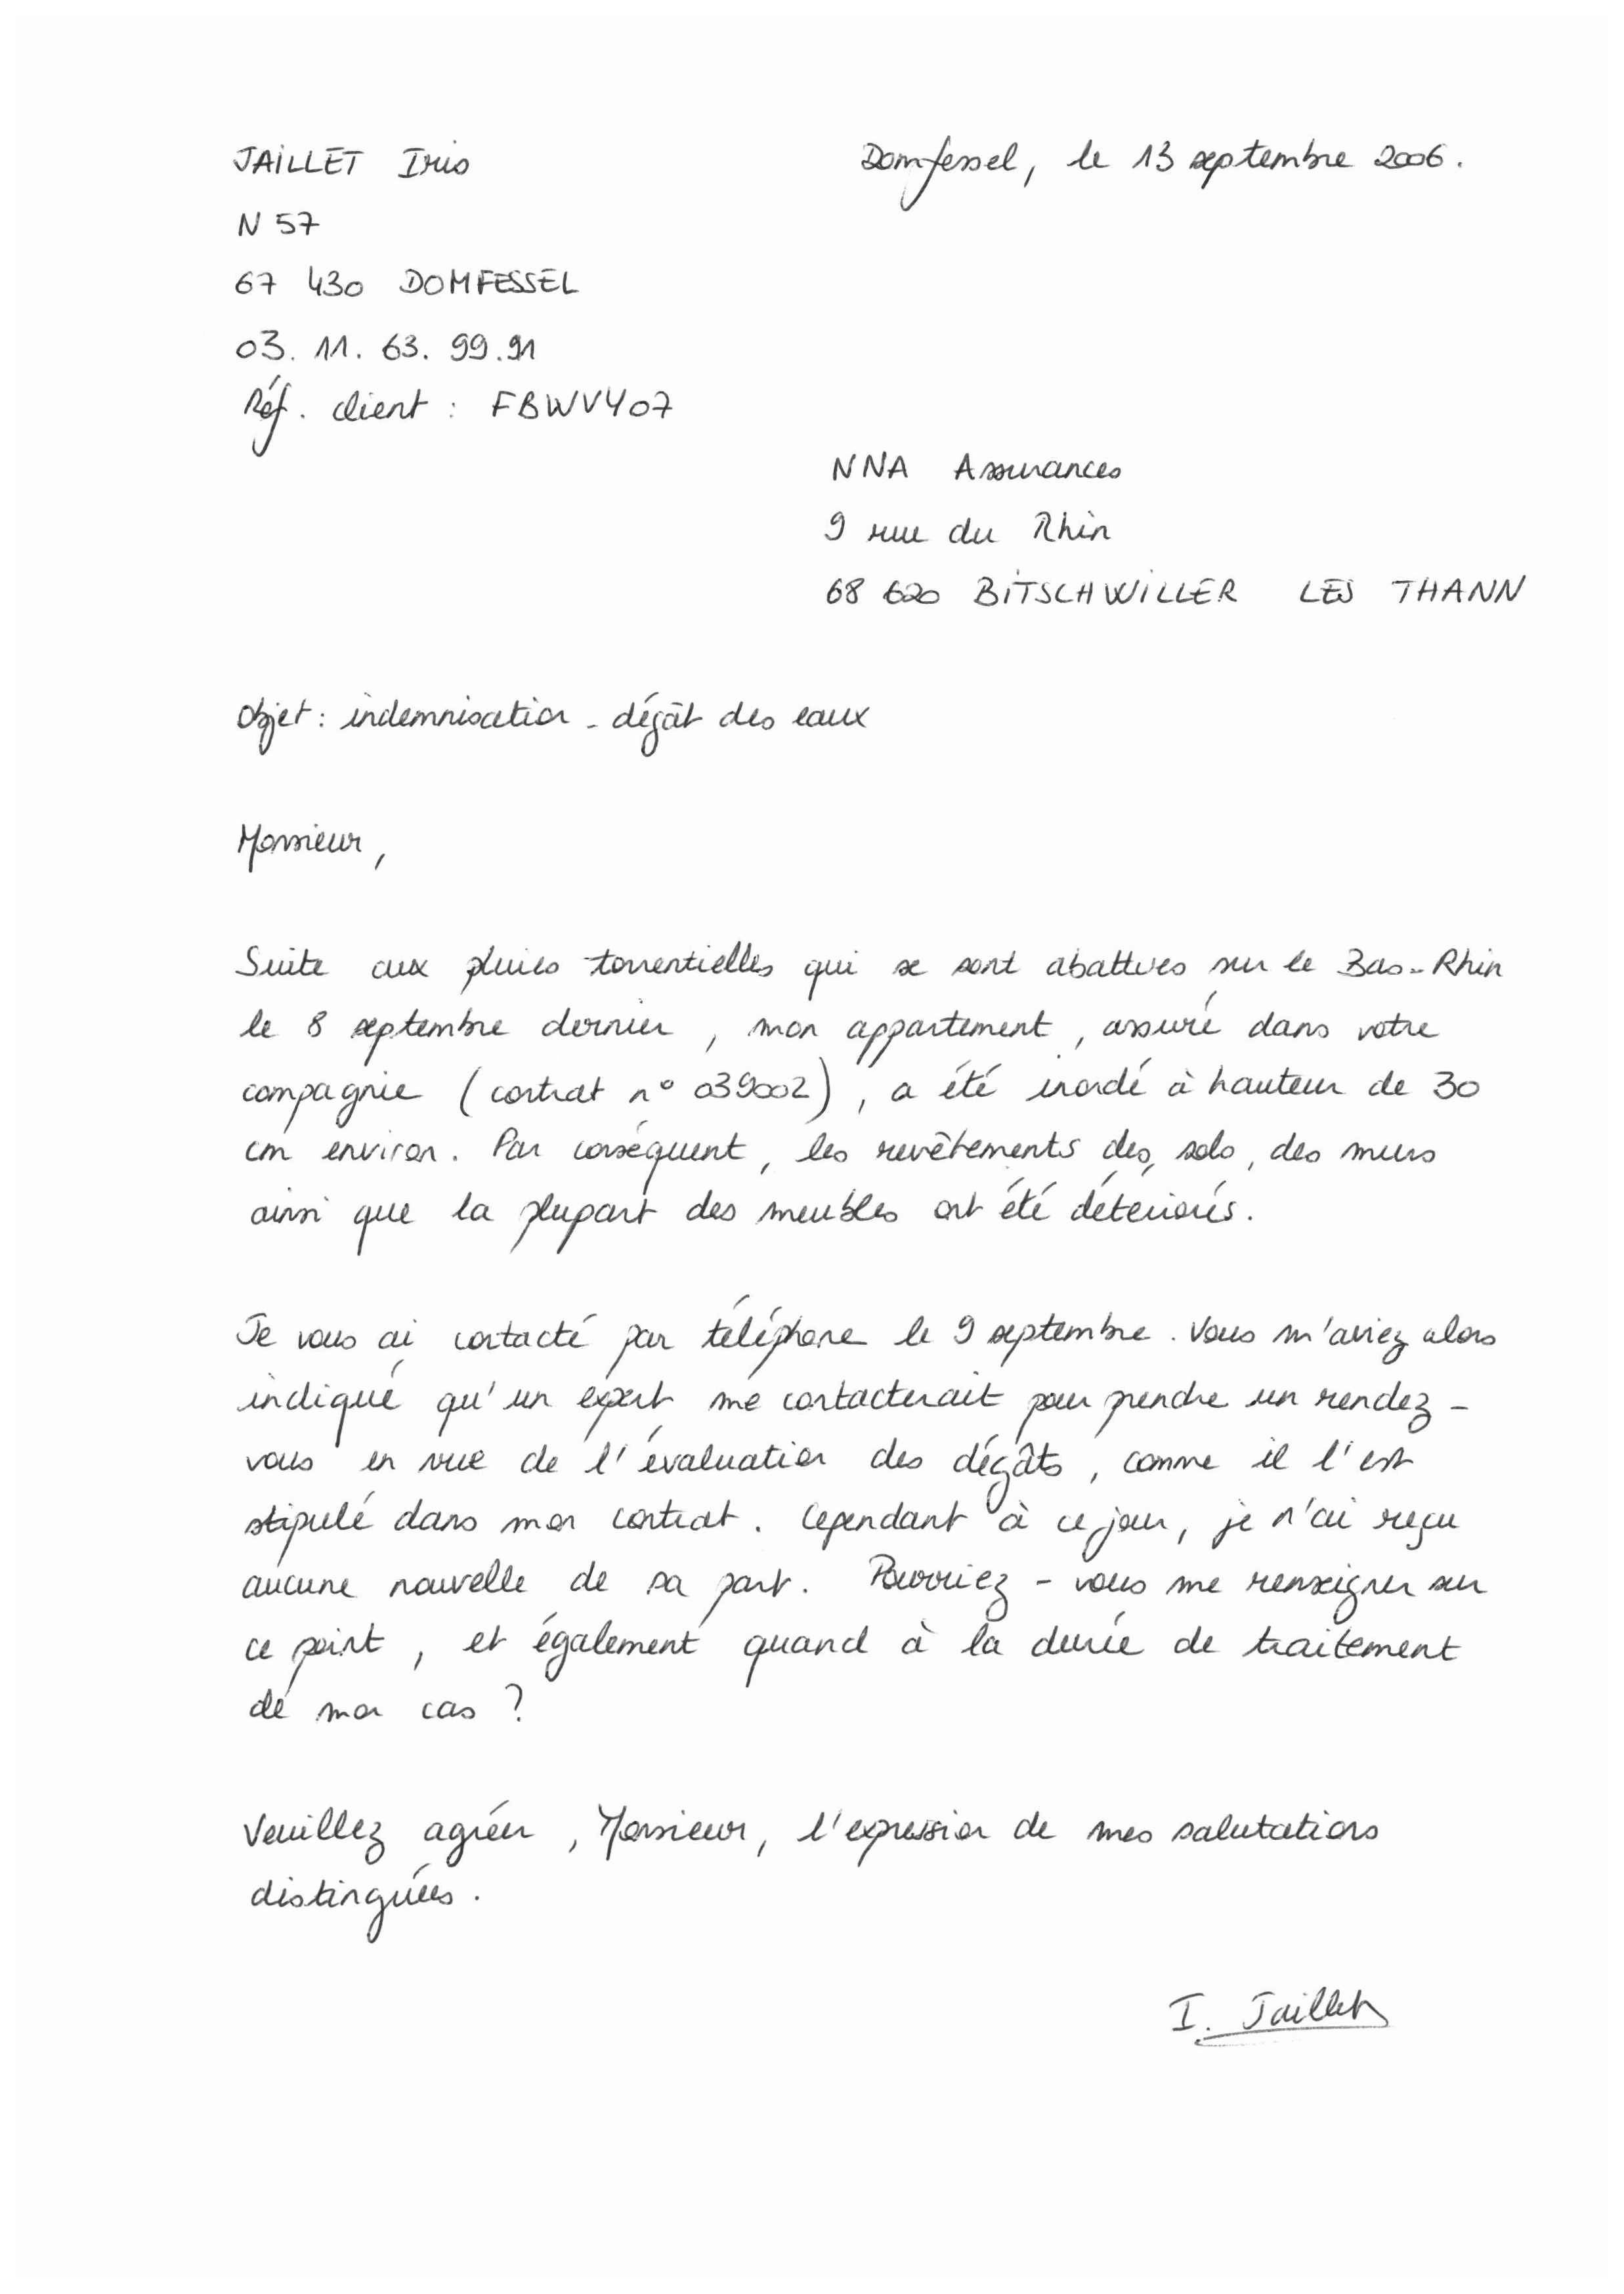 JAILLET Iris
Domfessel, le 13 septembre 2006.
N 57
67 430 DOMFESSEL
03. 11. 63. 99.91
Réf. client : FBWVY07
NNA Assurances
9 rue du Rhin
68 620 BITSCHWILLER LES THANN
Objet : indemnisation - dégât des eaux
Monsieur,
Suite aux pluies torrentielles qui se sont abattues sur le Bas-Rhin
le 8 septembre dernier, mon appartement, assuré dans votre
compagnie (contrat n° 039002), a été inondé à hauteur de 30
cm environ. Par conséquent, les revêtements des sols, des murs
ainsi que la plupart des meubles ont été détériorés.
Je vous ai contacté par téléphone le 9 septembre. Vous m'aviez alors
indiqué qu'un expert me contacterait pour prendre un rendez-
vous en vue de l'évaluation des dégâts, comme il l'est
stipulé dans mon contrat. Cependant à ce jour, je n'ai reçu
aucune nouvelle de sa part. Pourriez-vous me renseigner sur
ce point, et également quand à la durée de traitement
de mon cas ?
Veuillez agréer, Monsieur, l'expression de mes salutations
distinguées.
I. Jaillet